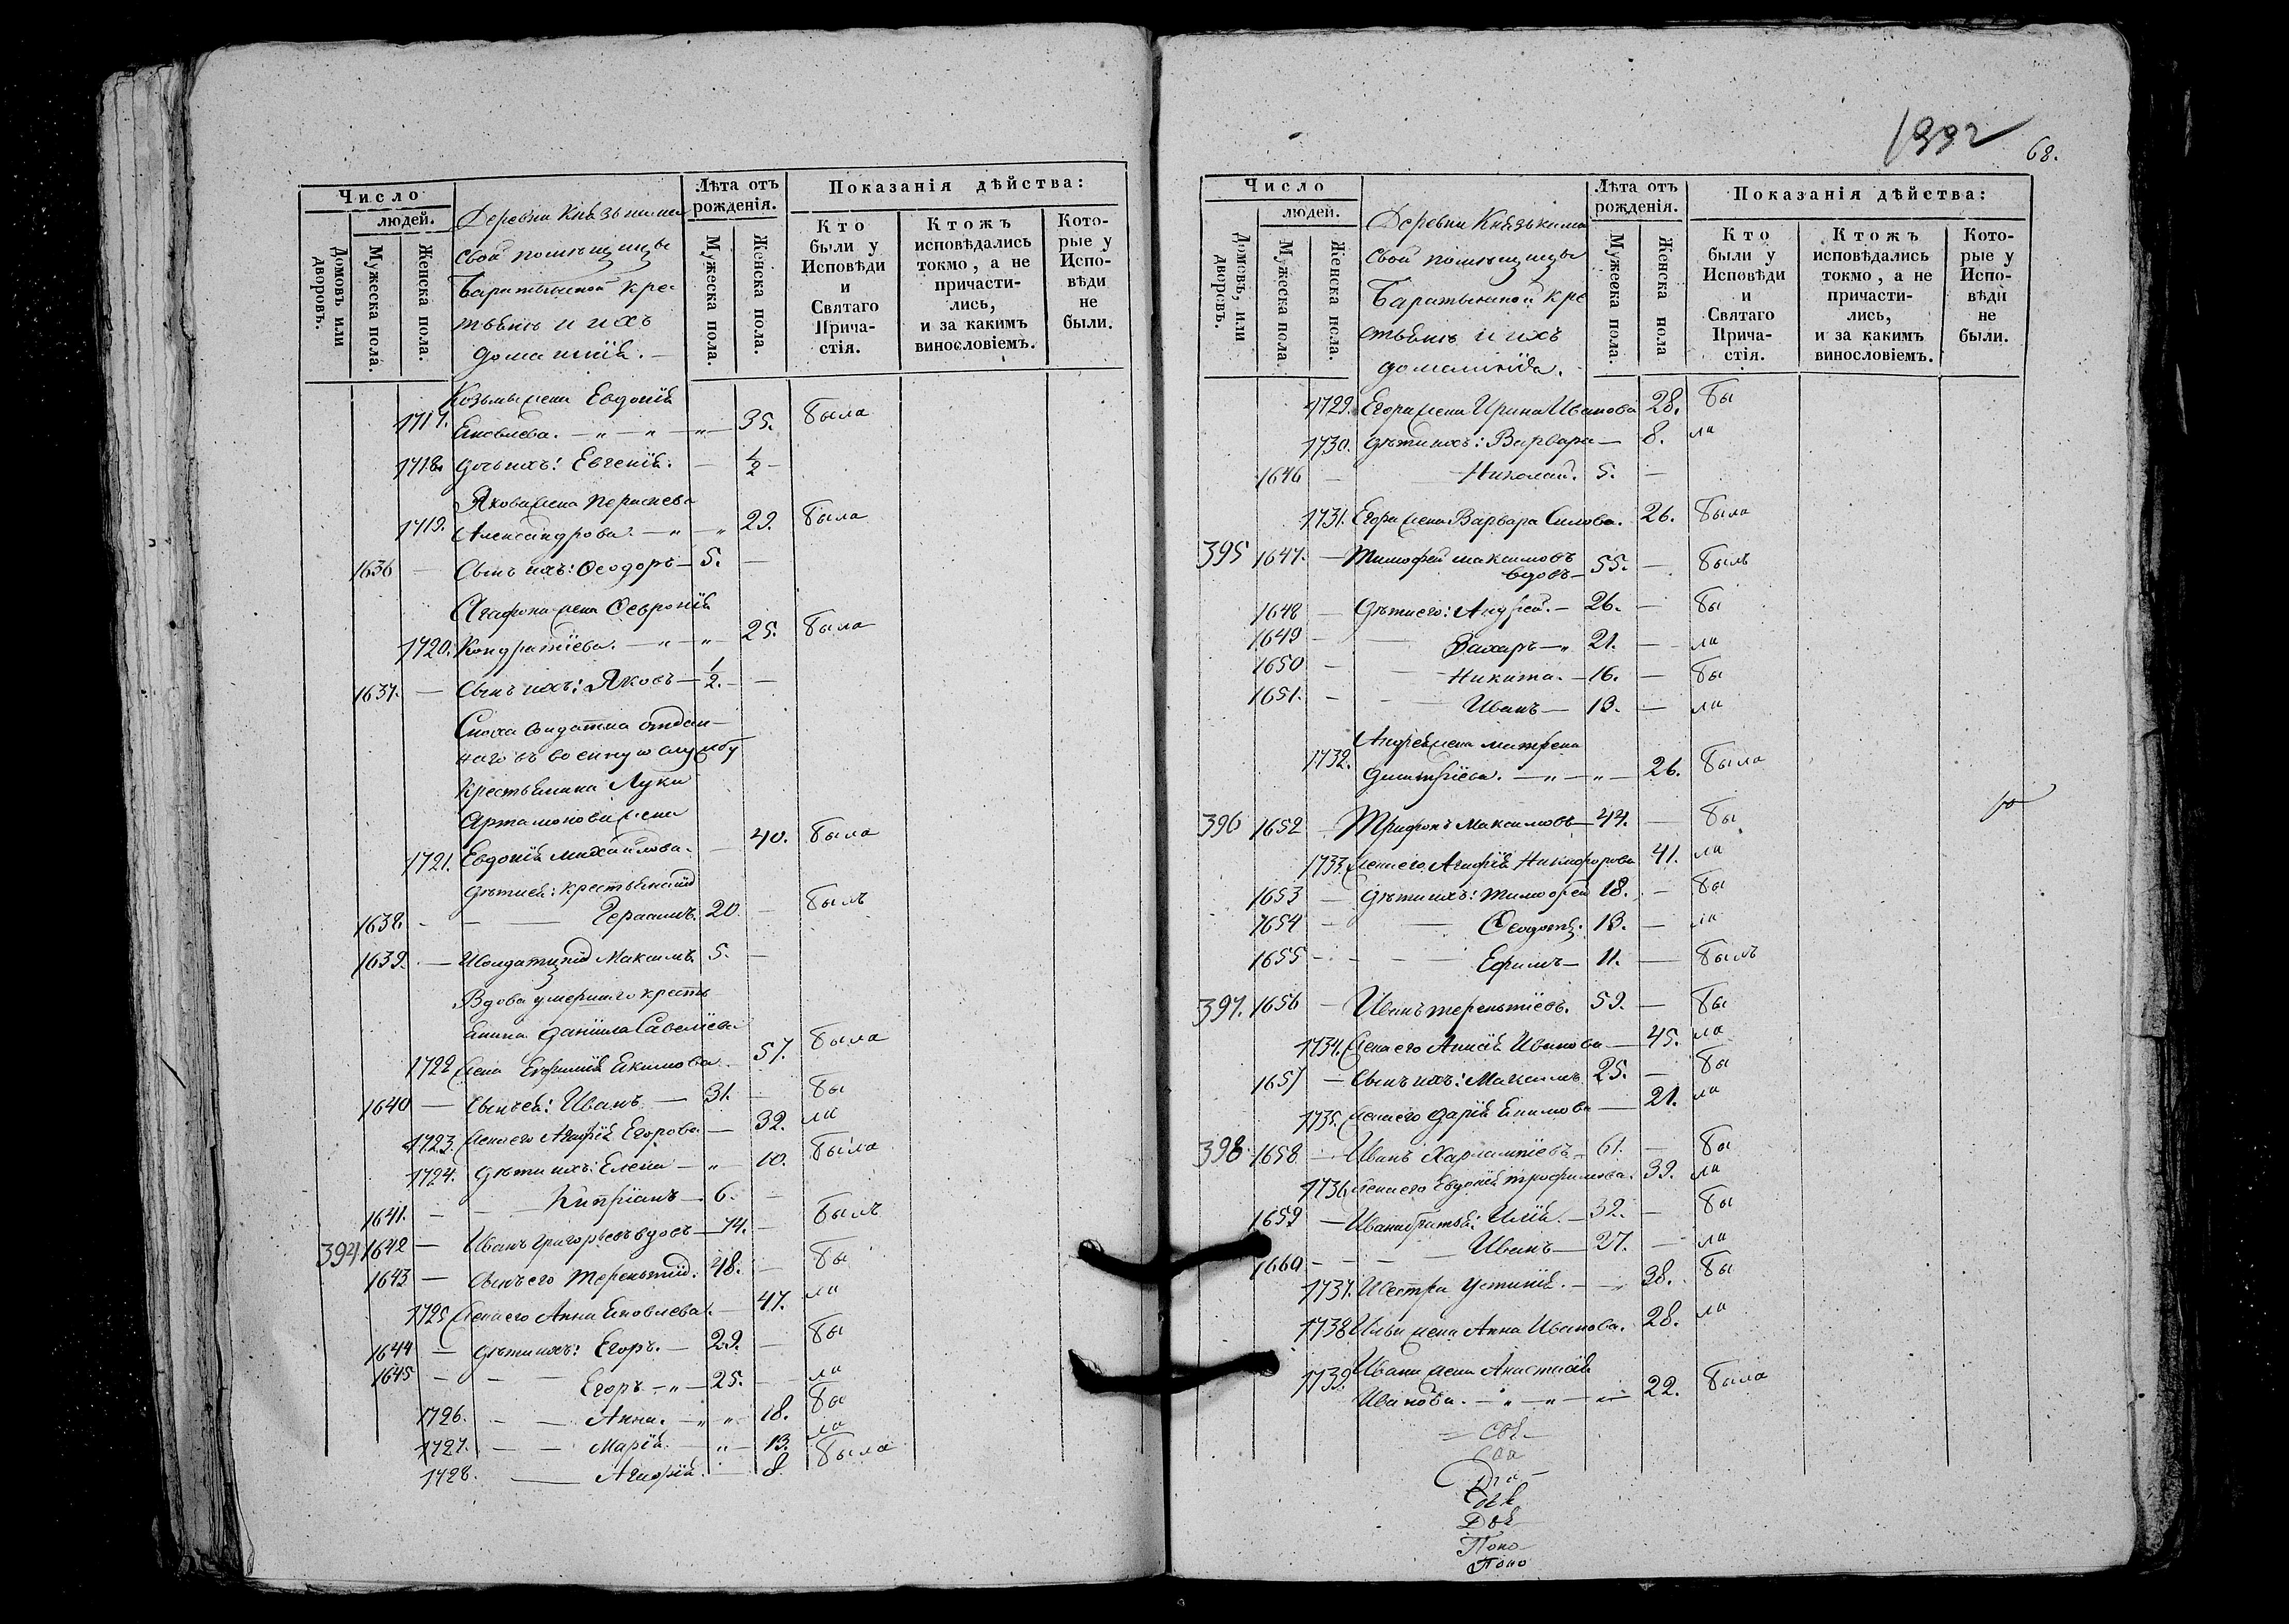 Число
людей.
Домовъ или дворовъ.
Мужеска пола.
Женска пола.
Деревни
свой помѣщицы
Баратынской кре
тьянъ и ихъ
домашнія.
Лѣта отъ рожденія.
Мужеска пола.
Женска пола.
Показанія дѣйства:
Кто были у Исповѣди и Святаго Прича-стія.
Ктожъ исповѣдались токмо, а не причасти-лись, и за какимъ винословіемъ.
Кото-рые у Испо-вѣди не были.
Козьмы жена Евдокія
1717. Яковлева. 35. была
1718. дочь ихъ: Евгенія. 1/2
Якова жена
1719. Александрова. 29. была
1636 Сынъ ихъ: Ѳеодоръ 5.
Агафона жена Ѳевронія
1720. Кондратіева. 25. была
1637. Сынъ ихъ: Яковъ 1/2.
Сноха солдатка отдан
наго въ военную службу
крестьянина Луки
Артамонова жена
1721. Евдокія Михайлова. 40. была
дѣти ея: крестьянскій
1638 Герасимъ. 20. былъ
1639. Исолдатскій Максимъ. 5.
Вдова умершаго кресть
янина Даніила Савеліева
1722 жена Евфимія Екимова 57. была
1640 Сынъ ея: Иванъ 31. бы
1723. жена его Агафія Егорова 32. ла
1724. дѣти ихъ: Елена 10. была
1641. Кипріанъ 6.
394 1642 Иванъ Григорьевъ вдовъ 74. былъ
1643 Сынъ его Терентій. 48. бы
1725 жена его Анна Яковлева. 47. ла
1644 дѣти ихъ: Егоръ. 29. бы
1645 Егоръ 25. ла
1726. Анна. 18. бы
1727. Марія. 13. ла
1728. Агафія. 8. была
1992
68.
Число
людей.
Домовъ, или дворовъ.
Мужеска пола
Женска пола.
Деревни
свой помѣщицы
Баратынской кре
стьянъ и ихъ
домашнія.
Лѣта отъ рожденія.
Мужеска пола.
Женска пола
Показанія дѣйства:
Кто были у Исповѣди и Святаго Прича-стія.
Ктожъ исповѣдались токмо, а не причасти-лись, и за какимъ винословіемъ.
Кото-рые у Испо-вѣди не были.
1729. Егора жена Ирина Иванова 28. бы
1730. дѣти ихъ: Варвара 8. ла
1646 Николай. 5.
1731. Егора жена Варвара Силова. 26. была
395 1647. Тимофей Максимовъ
вдовъ 55. былъ
1648 дѣти его: Андрей. 26. бы
1649 Захаръ 21. ла
1650 Никита. 16. бы
1651. Иванъ 13. ла
Андрея жена Матрена
1732. Дмитріева. 26. была
396 1652 Трифонъ Максимовъ 44. бы
1733. жена его Агафія Никифорова 41. ла
1653 дѣти ихъ: Тимофей 18. бы
1654 Ѳеодотъ. 13. ла
1655 Ефимъ 11. былъ
397. 1656 Иванъ Терентіевъ. 59. бы
1734. жена его Анисія Иванова 45. ла
1657 Сынъ ихъ: Максимъ 25. бы
1735. жена его Дарія Екимова 21. ла
398 1658 Иванъ Харлампіевъ 61. бы
1736 жена его Евдокія Трофимова. 39. ла
1659 Ивана братья: Илія. 32. бы
1660 Иванъ 27. ла
1737. Исестра Устинія. 38. бы
1738 Ильи жена Анна Иванова. 28. ла
Ивана жена Анастасія
1739. Иванова. 22. была
Поно
Поно